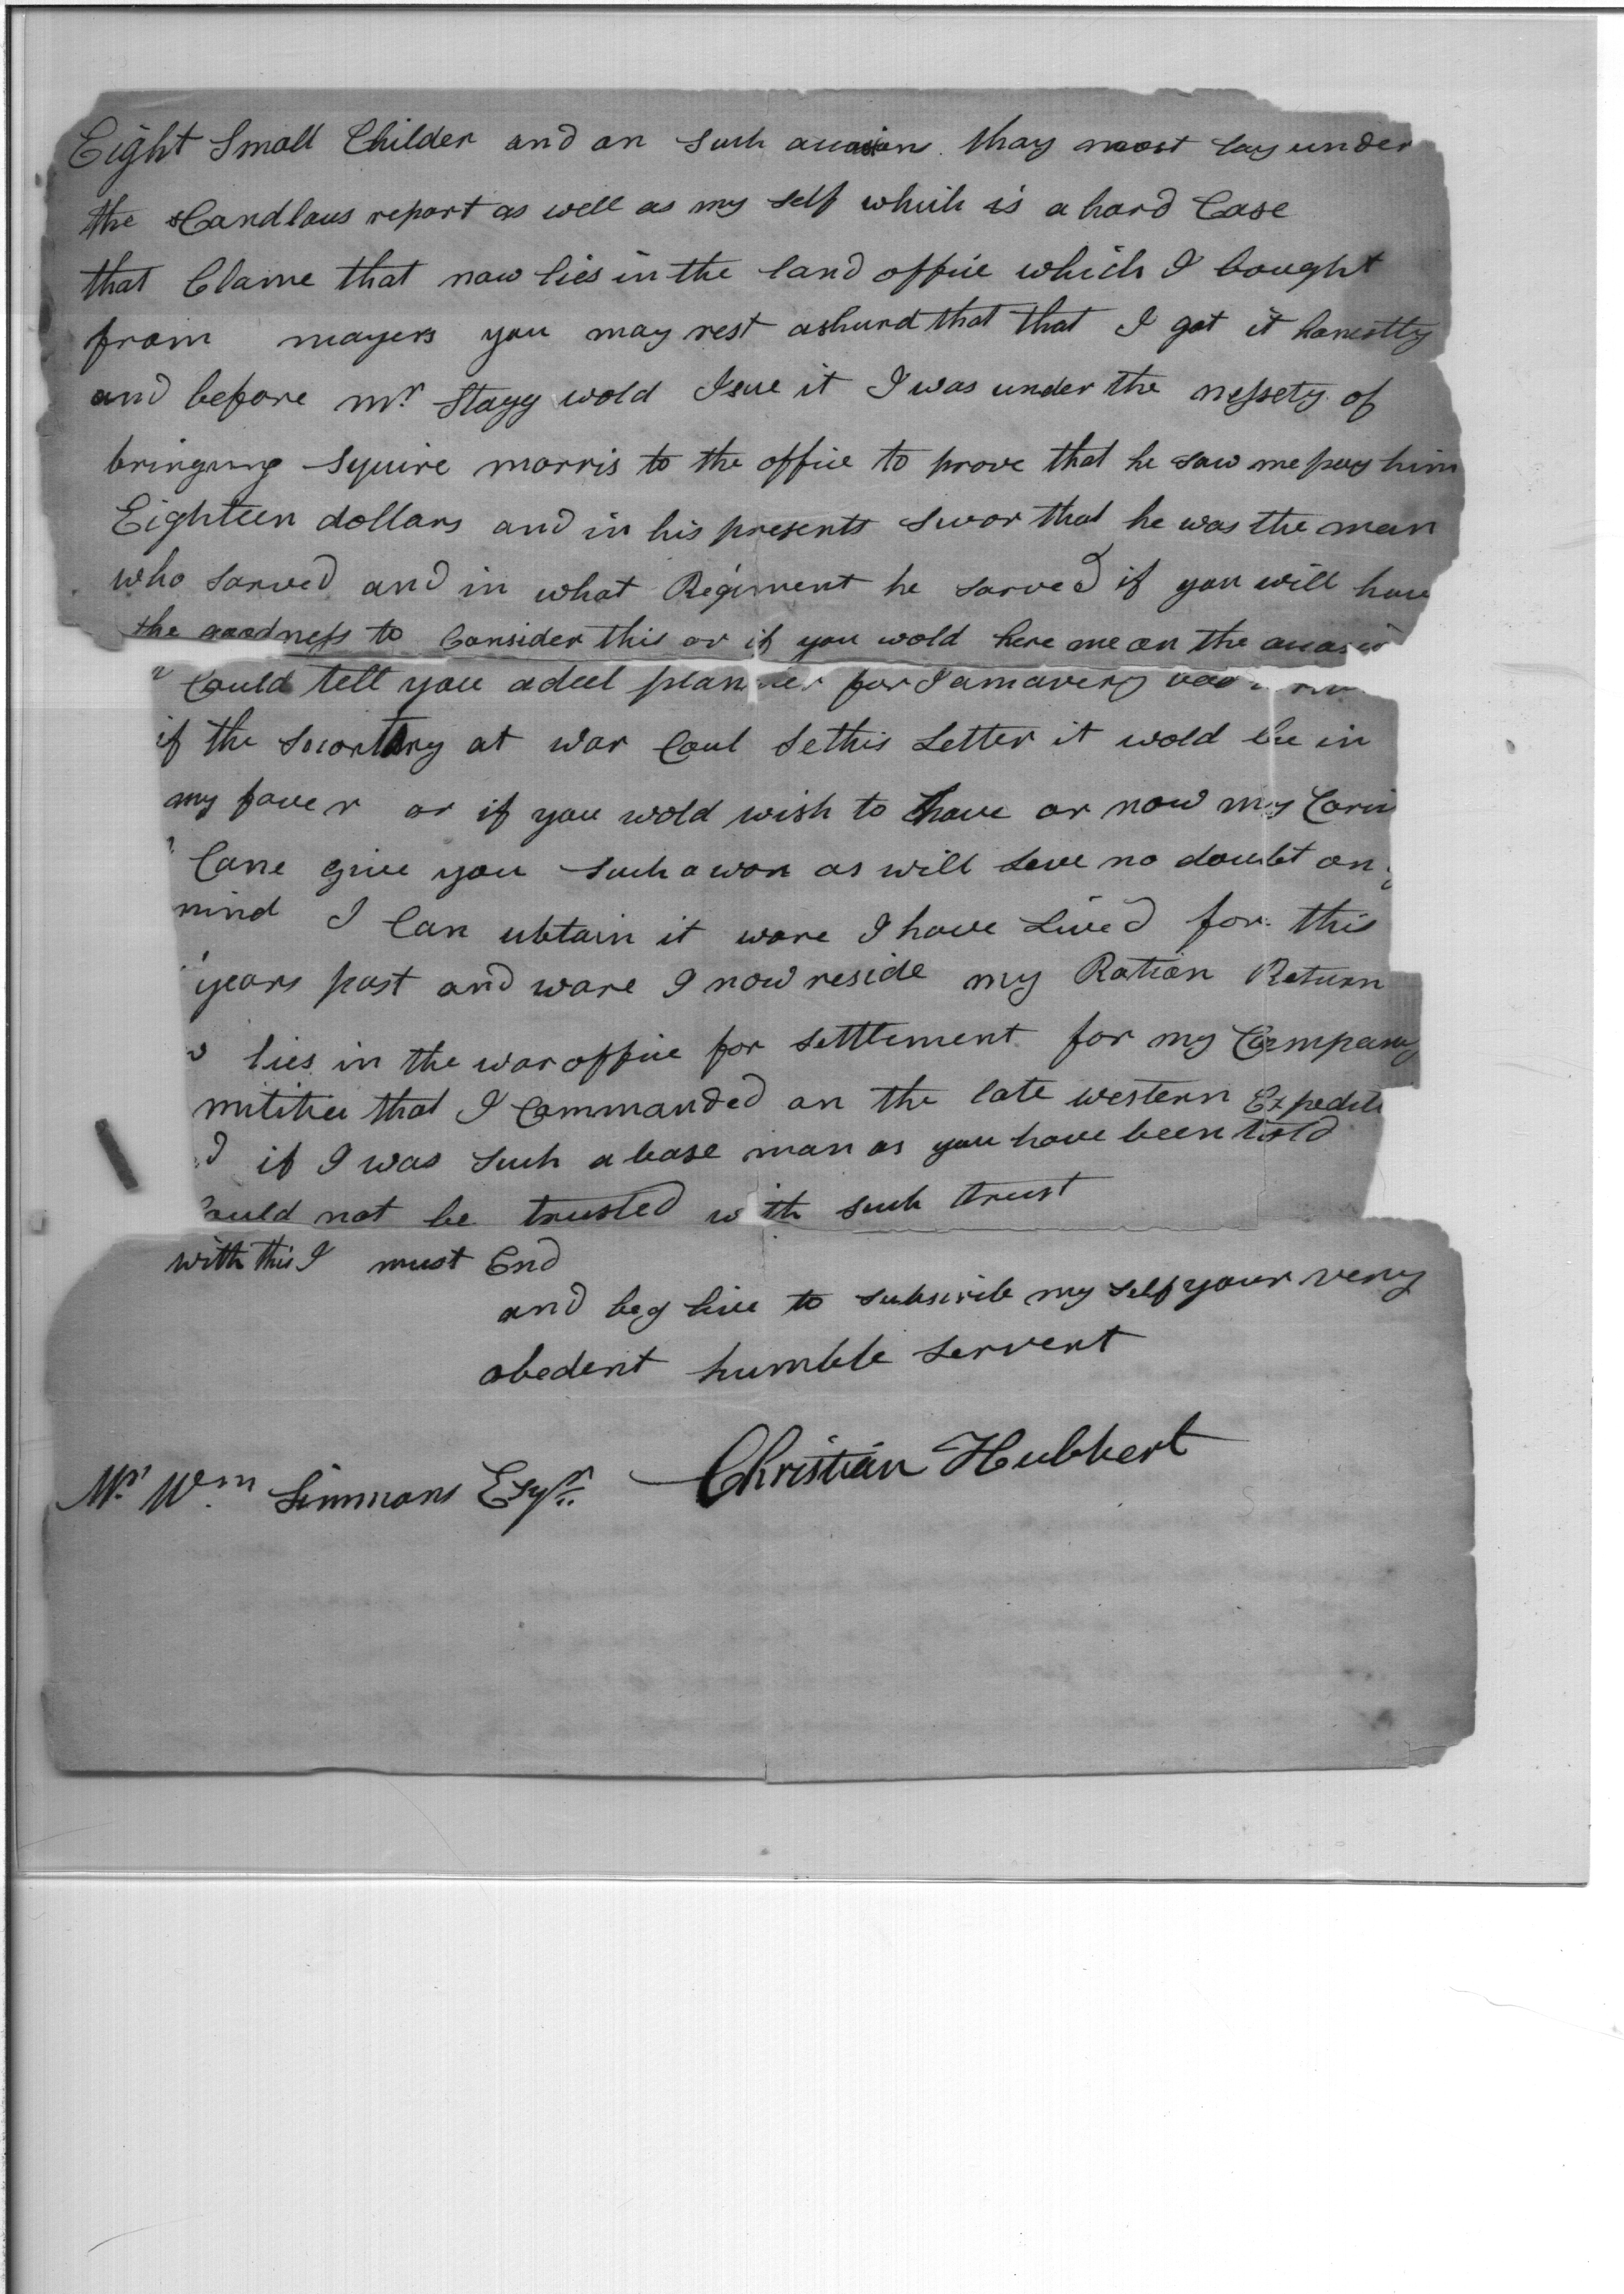 Eight Small Childer and on Such accasion thay most lay under
the sCandlous report as well as my self which is a hard Case
that Clame that now lies in the land office which I bought
from mayers you may rest ashurd that that I got it honestly
and before Mr. Stagg wold Isue it I was under the nessety of
bringung Squire morris to the office to prove that he saw me pay him
Eighteen dollars and in his presents Swor that he was the man
who sarved and in what Regiment he sarved if you will have
the goodness to Consider this or if you wold here me on the
Could tell you a deel planner for I am a very
if the Secortary at war Coul Se this Letter it wold be in
my faver or if you wold wish to have or now my
Cane give you Such a won as will leve no doubt on
mind I Can ubtain it ware I have Lived for this
years past and ware I now reside my Ration Return
lies in the war office for Settlement for my Company
militiea that I Commanded on the late western Expediti
if I was Such a base man as you have been told
Could not be trusted with such trust
with this I must End
and beg live to subscribe my self your very
obedent humble Servent
Mr. Wm. Simmons Esqr. Christian Hubbert